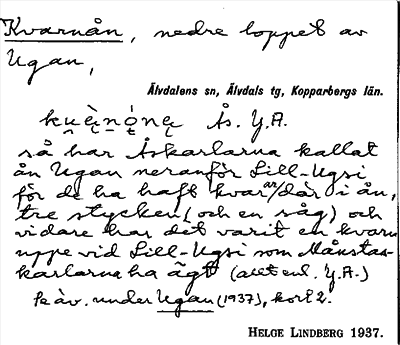 Kvarnån, nedre loppet av
Ugan,
Älvdalens sn, Älvdals tg, Kopparbergs län.
Ås. Y.A.
så har Åskarlarna kallat
ån Ugan neranför Lill-Ugsi
för de ha haft kvarnar där i ån,
tre stycken (och en såg) och
vidare har det varit en kvarn
uppe vid Lill-Ugsi som Månstas-
karlarna ha ägt (allt enl. Y.A.)
k av. under Ugan (1937), kort 2.
HELGE LINDBERG 1937.